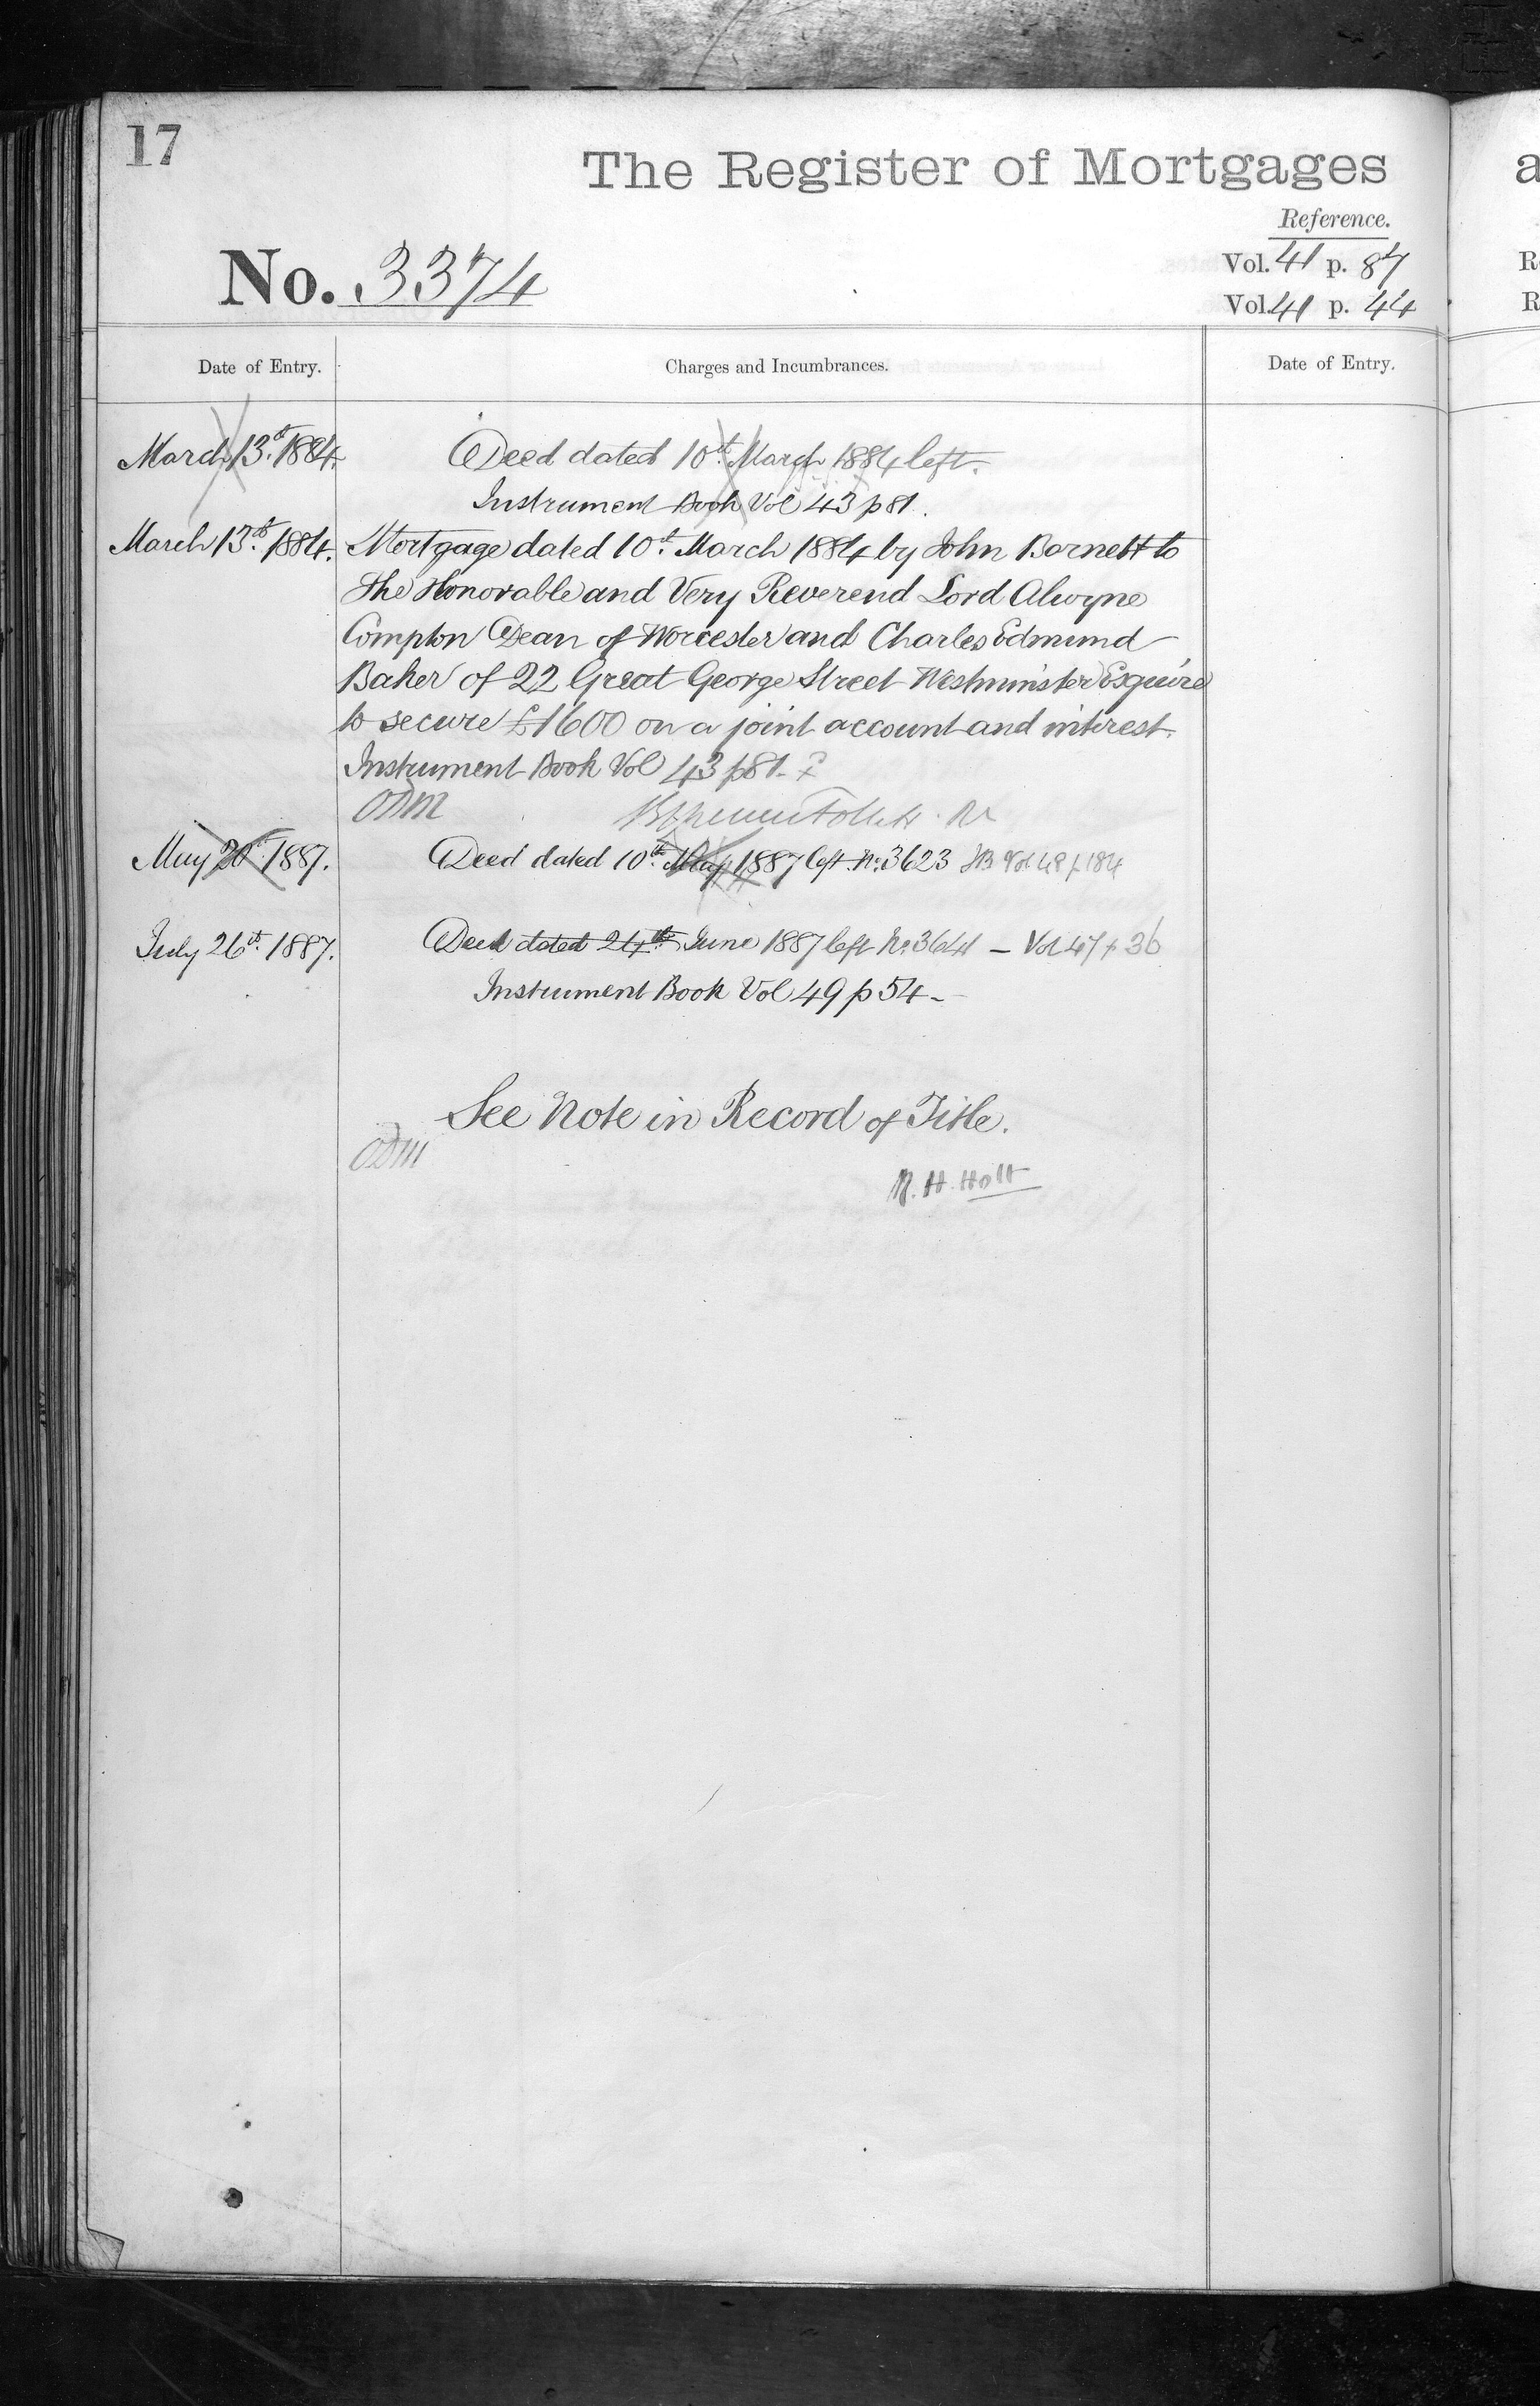 17
The Register of Mortgages
Reference.
No. 3374
Vol. 41 p. 87
Vol. 41 p. 44
Date of Entry.
Charges and Incumbrances.
Date of Entry.
March 13th 1884.
Deed dated 10th March 1884 left.
Instrument Book Vol 43 p 81.
March 13th 1884.
Mortgage dated 10th March 1884 by John Barnett to
The Honorable and Very Reverend Lord Alwyne
Compton Dean of Worcester and Charles Edmund
Baker of 22 Great George Street Westminster Esquire
to secure £1600 on a joint account and interest.
Instrument Book Vol 43 p 81.
May 20th 1887.
Deed dated 10th May 1887 left No. 3623 IB Vol 48 p 184
July 26th 1887.
Deed dated 24th June 1887 left No. 3641 - Vol 47 p 36
Instrument Book Vol 49 p 54 -
See Note in Record of Title.
R. H. Holt